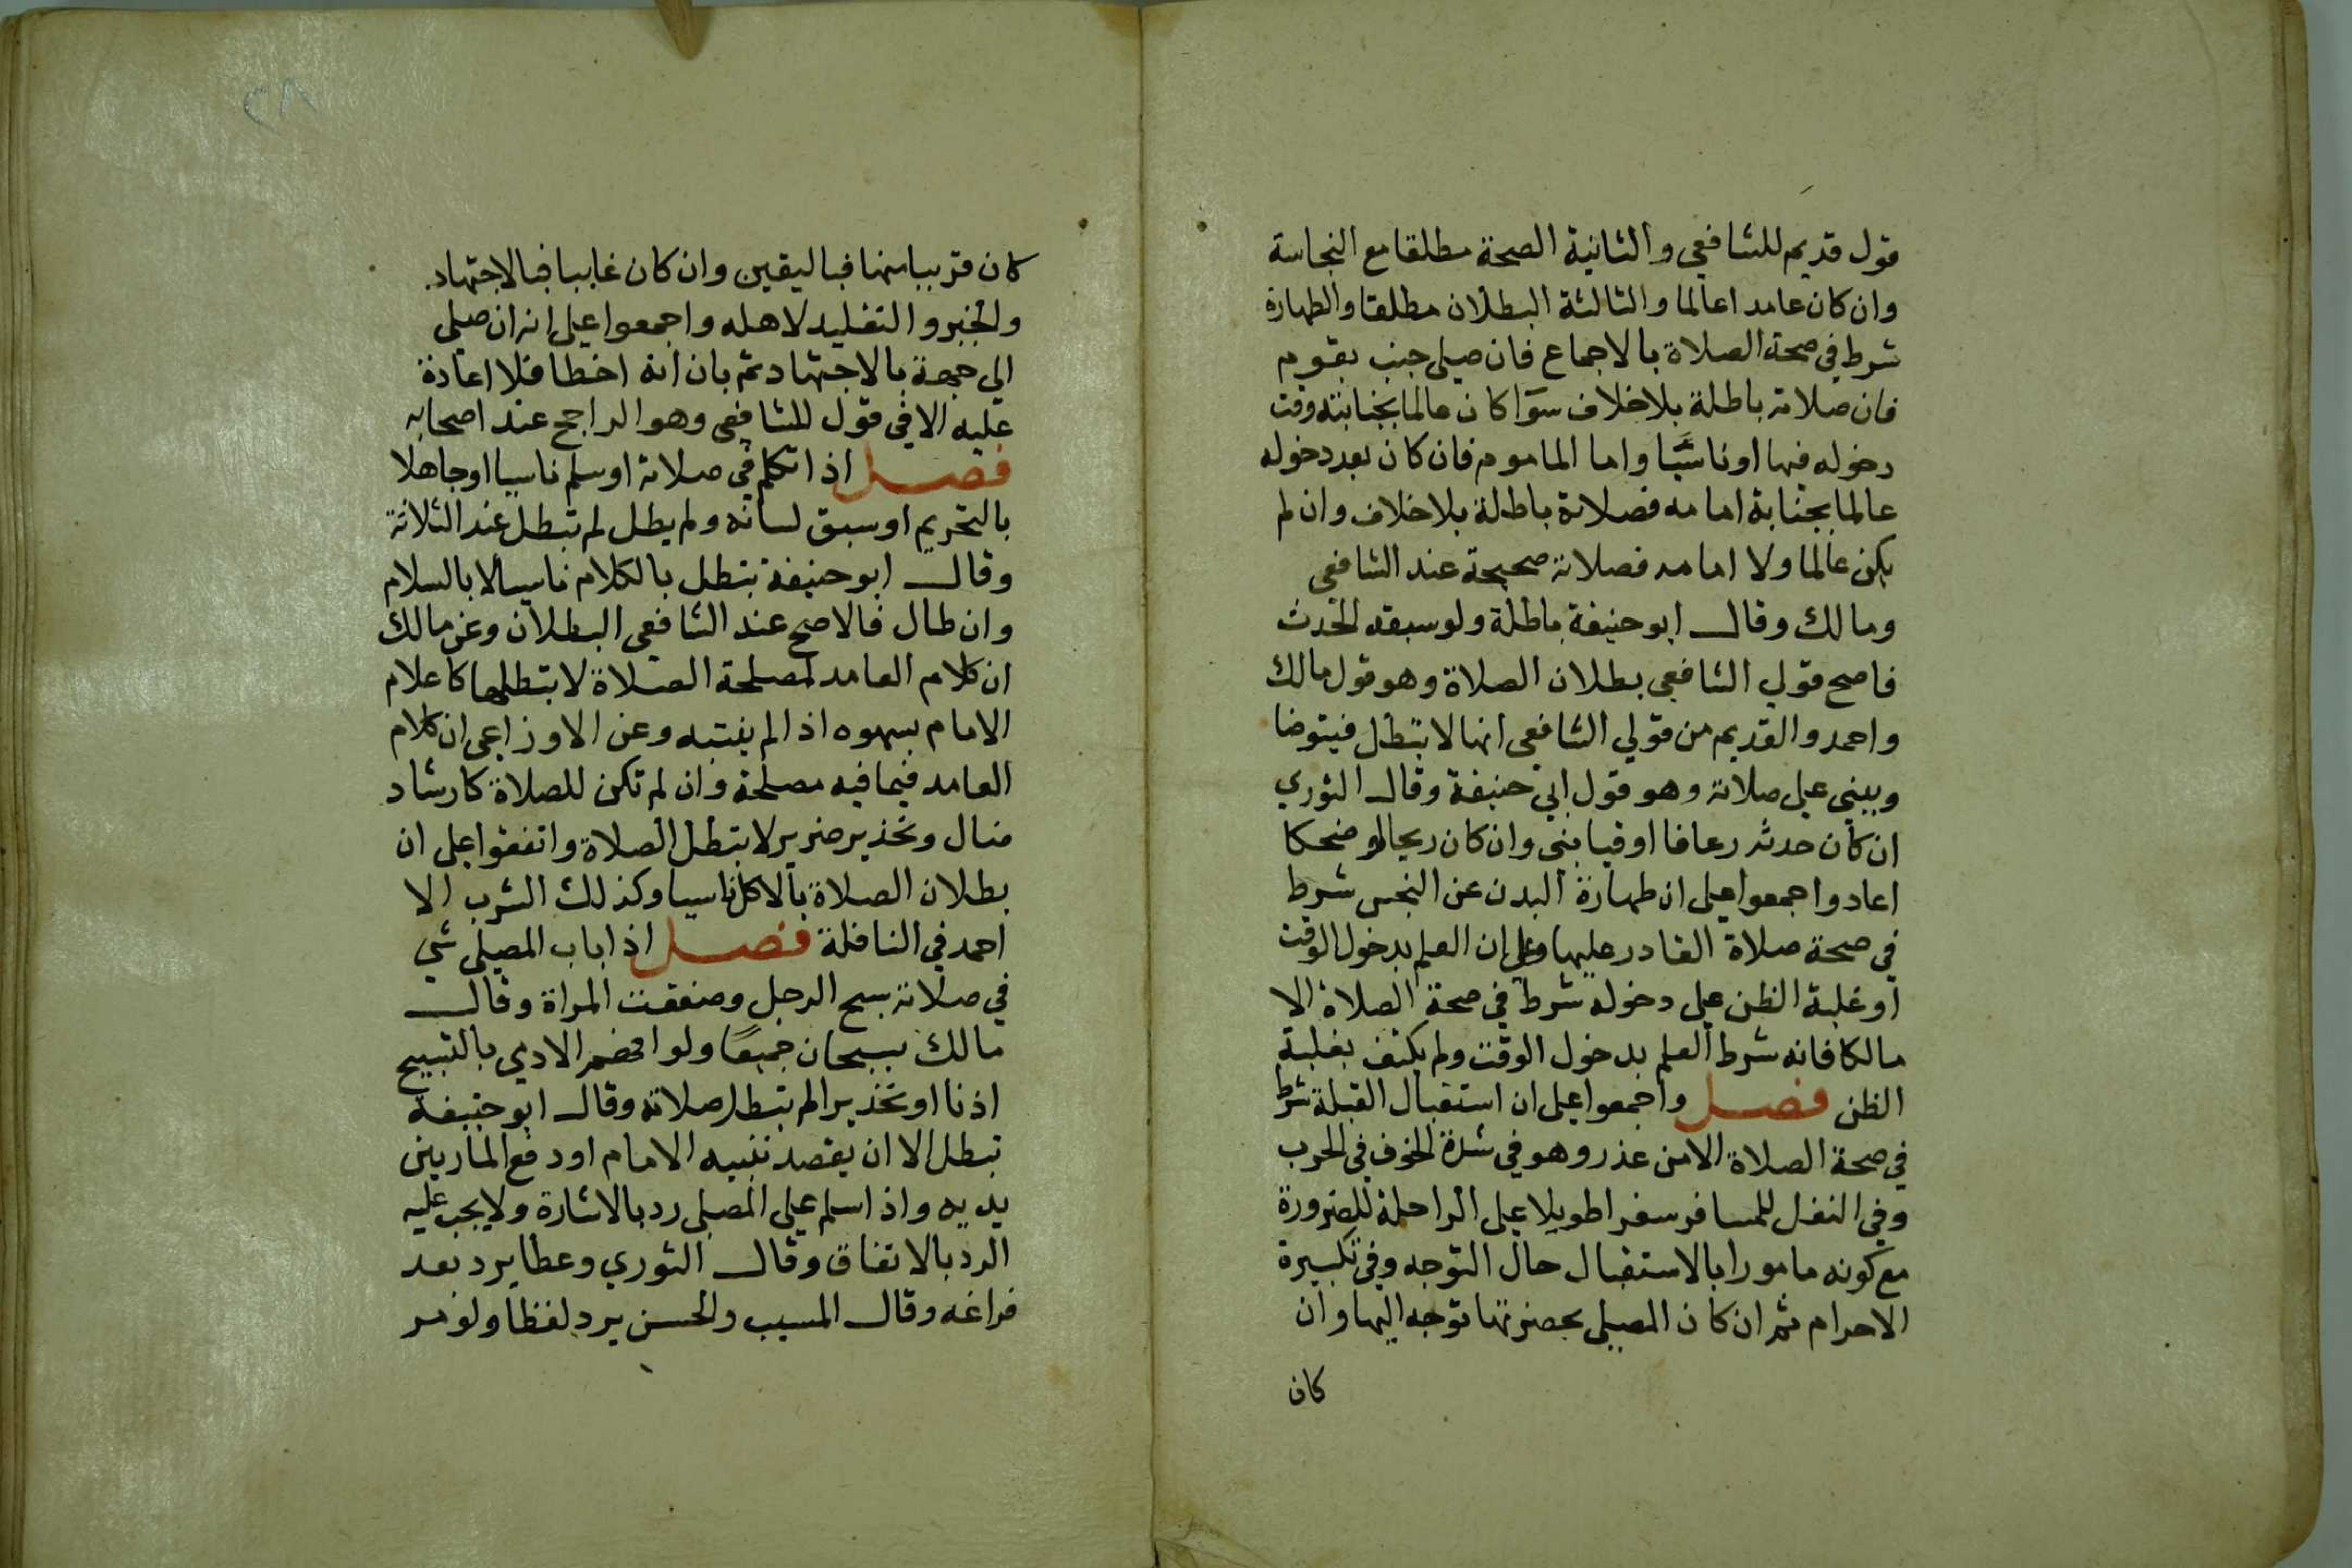 قول قديم للشافعي والثانية الصحة مطلقا مع النجاسة
وان كان عامدا عالما والثالثة البطلان مطلقا والطهارة
شرط في صحة الصلاة بالاجماع فان صلى جنب بقوم
فان صلاته باطلة بلا خلاف سوآ كان عالما بجنابته وقت
دخوله فيها او ناسيا واما الماموم فان كان بعد دخوله
عالما بجنابة امامه فصلاتة باطلة بلا خلاف وان لم
يكن عالما ولا امامه فصلاته صحيحة عند الشافعي
ومالك وقال ابو حنيفة باطلة ولو سبقه الحدث
فاصح قولي الشافعي بطلان الصلاة وهو قول مالك
واحمد والقديم من قولي الشافعي انها لا تبطل فيتوضا
ويبني على صلاته وهو قول ابي حنيفة وقال الثوري
ان كان حدثه رعافا او قيا بنى وان كان ريحا او ضحكا
اعاد واجمعوا على ان طهارة البدن عن النجس شرط
في صحة صلاة القادر عليها وعلى ان العلم بدخول الوقت
او غلبة الظن على دخوله شرط في صحة الصلاة الا
مالكا فانه شرط العلم بدخول الوقت ولم يكتف بغلبة
الظن فصل واجمعوا على ان استقبال القبلة شرط
في صحة الصلاة الا من عذر وهو في شدة الخوف في الحرب
وفي النفل للمسافر سفرا طويلا على الراحلة للضرورة
مع كونه مامورا بالاستقبال حال التوجه وفي تكبيرة
الاحرام ثم ان كان المصلي بحضرتها توجه اليها وان
كان
كان قريبا منها فباليقين وان كان غايبا فبالاجتهاد
والخبر والتقليد لاهله واجمعوا على انه ان صلى
الي جهة بالاجتهاد ثم بان انه اخطا فلا اعادة
عليه الا في قول للشافعي وهو الراجح عند اصحابه
فصل اذا تكلم في صلاتة او سلم ناسيا او جاهلا
بالتحريم او سبق لسانه ولم يطل لم تبطل عند الثلاثة
وقال ابو حنيفة تبطل بالكلام ناسيا لا بالسلام
وان طال فالاصح عند الشافعي البطلان وعن مالك
ان كلام العامد لمصلحة الصلاة لا يبطلها كاعلام
الامام بسهوه اذا لم يتنبه وعن الاوزاعي ان كلام
العامد فيما فيه مصلحة وان لم تكن للصلاة كارشاد
ضال وتحذير ضرير لا يبطل الصلاة واتفقوا على ان
بطلان الصلاة بالاكل ناسيا وكذلك الشرب الا
احمد في النافلة فصل اذا باب المصلى شي
في صلاته سبح الرجل وصفقت المراة وقال
مالك يسبحان جميعا ولو الادمي بالتسبيح
اذنا او تحذيرا لم تبطل صلاته وقال ابو حنيفه
تبطل الا ان يقصد تنبيه الامام او دفع المار بين
يديه واذا سلم على المصلى رد بالاشارة ولا يجب عليه
الرد بالاتفاق وقال الثوري وعطا يرد بعد
فراغه وقال المسيب والحسن يرد لفظا ولو مر